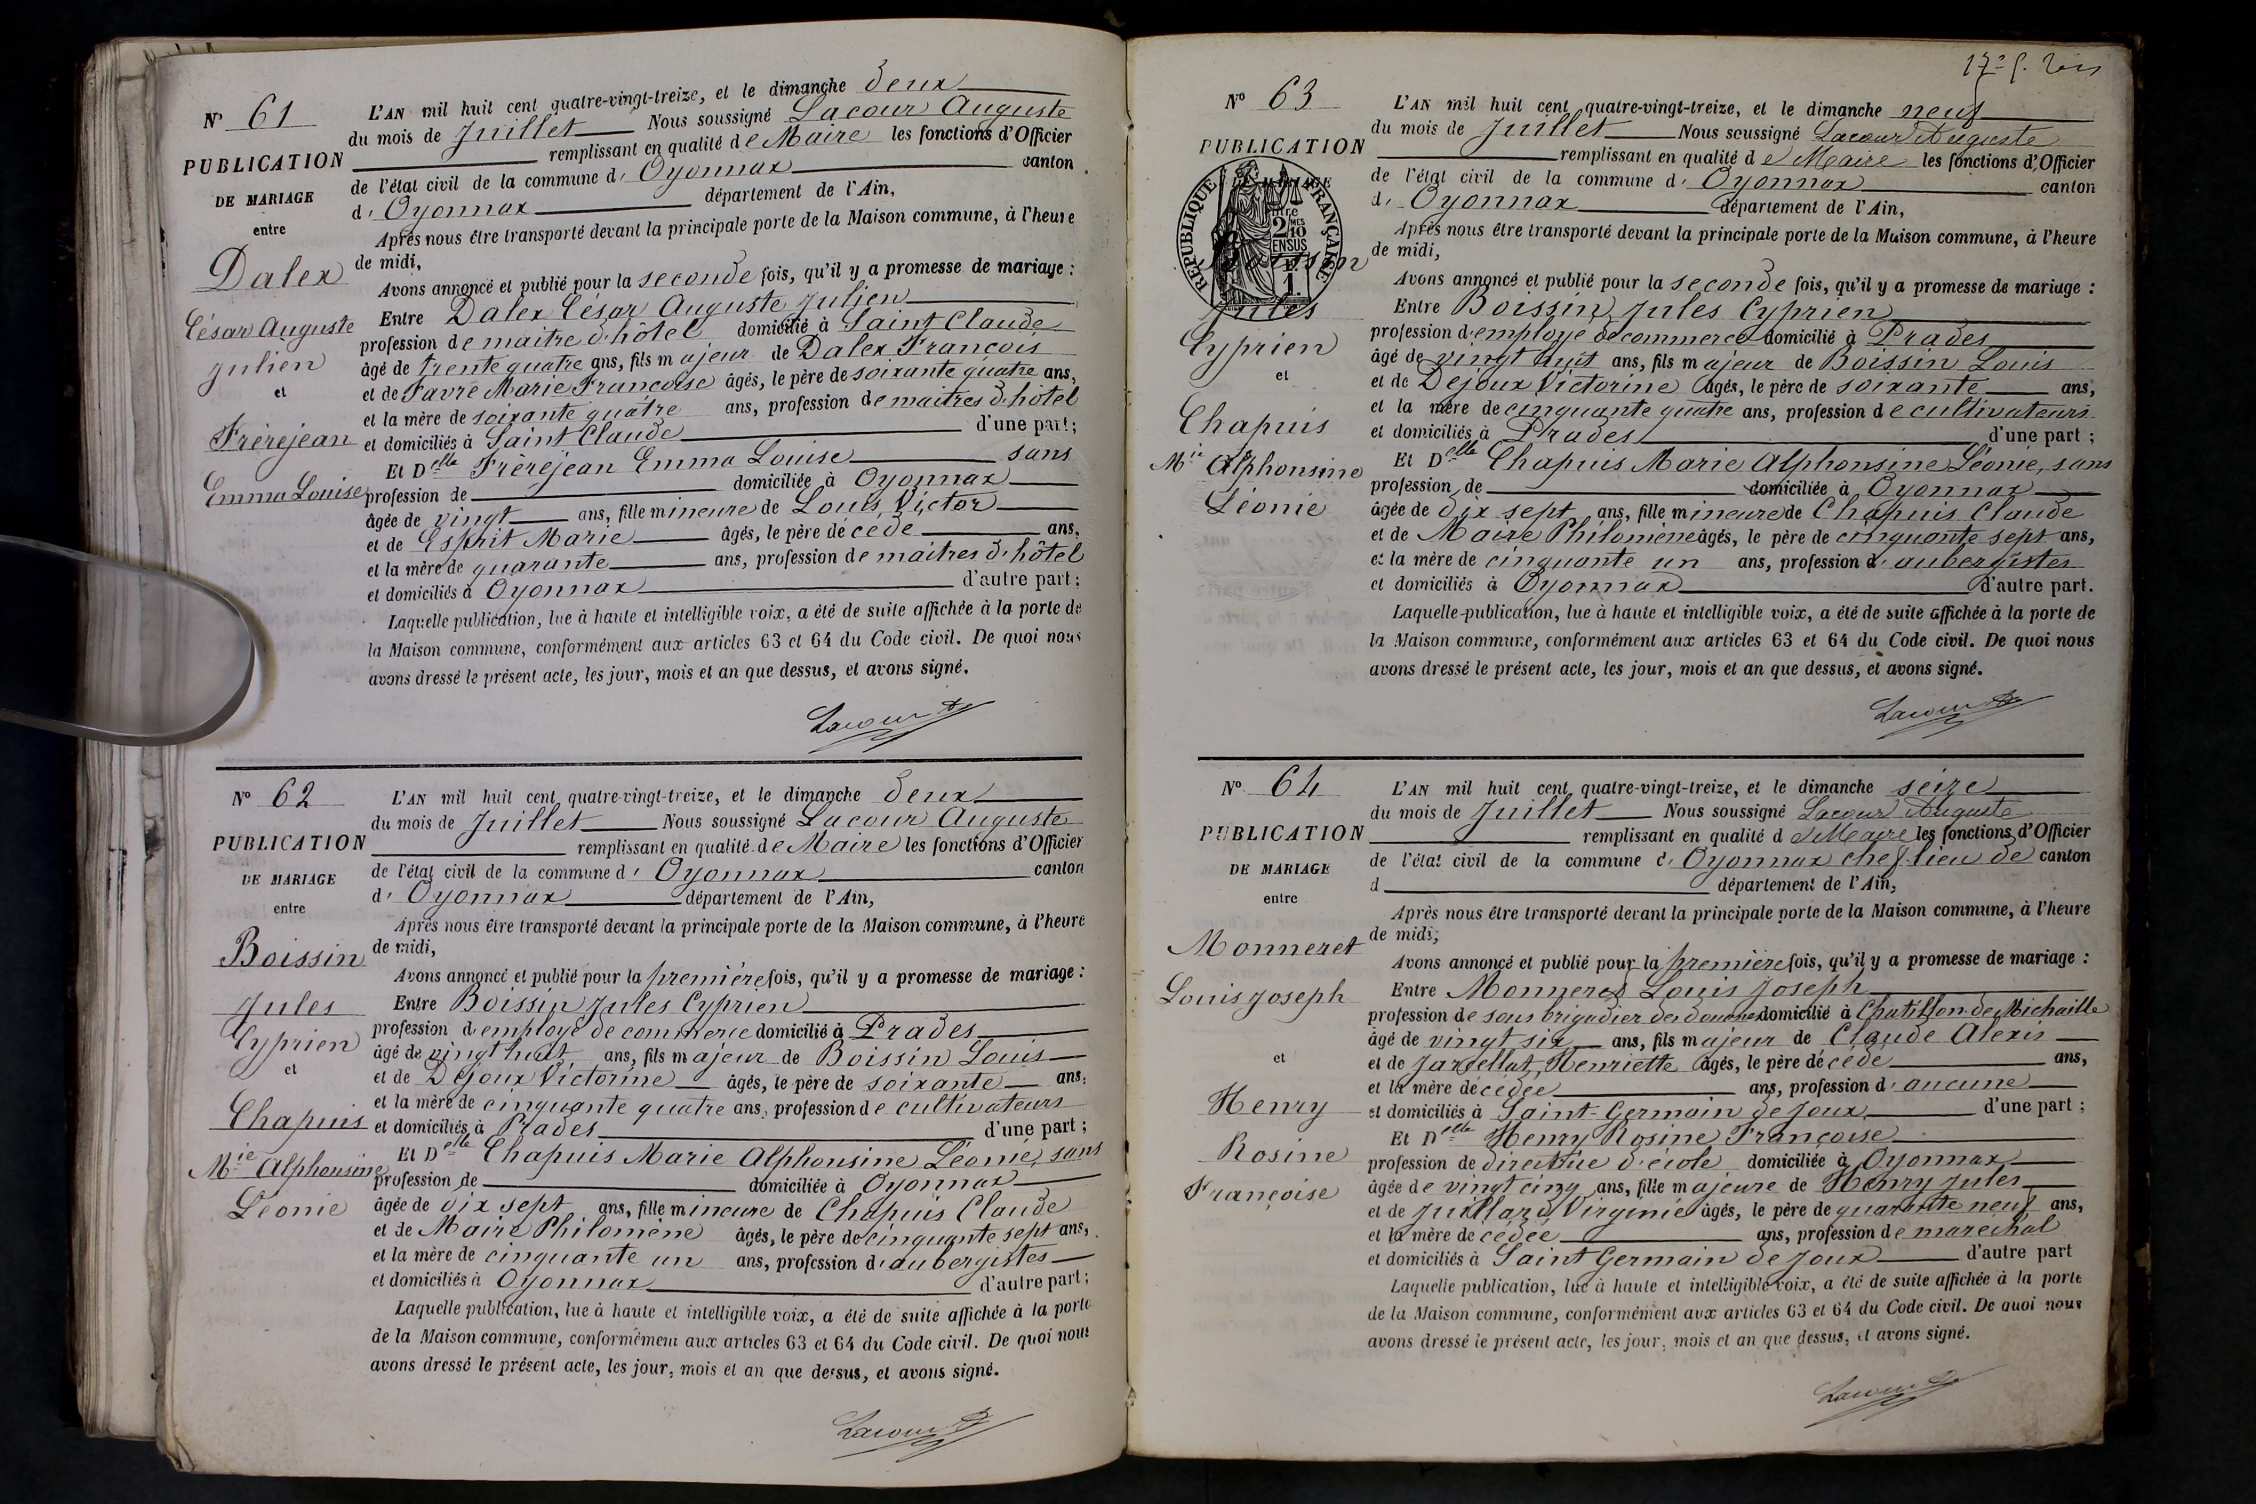 N° 61
PUBLICATION
DE MARIAGE
entre
Dalex
César Auguste
Julien
et
Frèrejean
Emma Louise
L'AN mil huit cent quatre-vingt-treize, et le dimanche deux
du mois de Juillet Nous soussigné Lacour Auguste
remplissant en qualité de Maire les fonctions d'Officier
de l'état civil de la commune d' Oyonnax canton
d' Oyonnax département de l'Ain,
Après nous être transporté devant la principale porte de la Maison commune, à l'heure
de midi,
Avons annoncé et publié pour la seconde fois, qu'il y a promesse de mariage :
Entre Dalex César Auguste Julien
profession de maitre d'hôtel domicilié à Saint Claude
âgé de trente quatre ans, fils majeur de Dalex François
et de Favre Marie Françoise âgés, le père de soixante quatre ans,
et la mère de soixante quatre ans, profession de maitres d'hôtel
et domiciliés à Saint Claude d'une part ;
Et Delle Frèrejean Emma Louise sans
profession de domiciliée à Oyonnax
âgée de vingt ans, fille mineure de Louis Victor
et de Esprit Marie âgés, le père décédé ans,
et la mère de quarante ans, profession de maitres d'hôtel
et domiciliés à Oyonnax d'autre part ;
Laquelle publication, lue à haute et intelligible voix, a été de suite affichée à la porte de
la Maison commune, conformément aux articles 63 et 64 du Code civil. De quoi nous
avons dressé le présent acte, les jour, mois et an que dessus, et avons signé.
Lacour A
N° 62
PUBLICATION
DE MARIAGE
entre
Boissin
Jules
Cyprien
et
Chapuis
Mie Alphonsine
Léonie
L'AN mil huit cent quatre-vingt-treize, et le dimanche deux
du mois de Juillet Nous soussigné Lacour Auguste
remplissant en qualité de Maire les fonctions d'Officier
de l'état civil de la commune d' Oyonnax canton
d' Oyonnax département de l'Ain,
Après nous être transporté devant la principale porte de la Maison commune, à l'heure
de midi,
Avons annoncé et publié pour la première fois, qu'il y a promesse de mariage :
Entre Boissin Jules Cyprien
profession d'employé de commerce domicilié à Prades
âgé de vingt huit ans, fils majeur de Boissin Louis
et de Dejoux Victorine âgés, le père de soixante ans,
et la mère de cinquante quatre ans, profession de cultivateurs
et domiciliés à Prades d'une part ;
Et Delle Chapuis Marie Alphonsine Léonie, sans
profession de domiciliée à Oyonnax
âgée de dix sept ans, fille mineure de Chapuis Claude
et de Maire Philomène âgés, le père de cinquante sept ans,
et la mère de cinquante un ans, profession d'aubergistes
et domiciliés à Oyonnax d'autre part ;
Laquelle publication, lue à haute et intelligible voix, a été de suite affichée à la porte
de la Maison commune, conformément aux articles 63 et 64 du Code civil. De quoi nous
avons dressé le présent acte, les jour, mois et an que dessus, et avons signé.
Lacour A
N° 63
PUBLICATION
DE MARIAGE
entre
RÉPUBLIQUE FRANÇAISE
2/10
EN SUS
1 F.
Boissin
Jules
Cyprien
et
Chapuis
Mie Alphonsine
Léonie
L'AN mil huit cent quatre-vingt-treize, et le dimanche neuf
du mois de Juillet Nous soussigné Lacour Auguste
remplissant en qualité de Maire les fonctions d'Officier
de l'état civil de la commune d' Oyonnax canton
d' Oyonnax département de l'Ain,
Après nous être transporté devant la principale porte de la Maison commune, à l'heure
de midi,
Avons annoncé et publié pour la seconde fois, qu'il y a promesse de mariage :
Entre Boissin Jules Cyprien
profession d'employé de commerce domicilié à Prades
âgé de vingt huit ans, fils majeur de Boissin Louis
et de Dejoux Victorine âgés, le père de soixante ans,
et la mère de cinquante quatre ans, profession de cultivateurs
et domiciliés à Prades d'une part ;
Et Delle Chapuis Marie Alphonsine Léonie, sans
profession de domiciliée à Oyonnax
âgée de dix sept ans, fille mineure de Chapuis Claude
et de Maire Philomène âgés, le père de cinquante sept ans,
et la mère de cinquante un ans, profession d'aubergistes
et domiciliés à Oyonnax d'autre part.
Laquelle publication, lue à haute et intelligible voix, a été de suite affichée à la porte de
la Maison commune, conformément aux articles 63 et 64 du Code civil. De quoi nous
avons dressé le présent acte, les jour, mois et an que dessus, et avons signé.
Lacour A
N° 64
PUBLICATION
DE MARIAGE
entre
Monneret
Louis Joseph
et
Henry
Rosine
Françoise
L'AN mil huit cent quatre-vingt-treize, et le dimanche seize
du mois de Juillet Nous soussigné Lacour Auguste
remplissant en qualité de Maire les fonctions d'Officier
de l'état civil de la commune d' Oyonnax chef lieu de canton
d département de l'Ain,
Après nous être transporté devant la principale porte de la Maison commune, à l'heure
de midi,
Avons annoncé et publié pour la première fois, qu'il y a promesse de mariage :
Entre Monneret Louis Joseph
profession de sous brigadier des douanes domicilié à Chatillon-de-Michaille
âgé de vingt six ans, fils majeur de Claude Alexis
et de Henriette âgés, le père décédé ans,
et la mère décédée ans, profession d'aucune
et domiciliés à Saint-Germain de Joux d'une part ;
Et Delle Henry Rosine Françoise
profession de directrice d'école domiciliée à Oyonnax
âgée de vingt cinq ans, fille majeure de Henry Jules
et de Juillard Virginie âgés, le père de quarante neuf ans,
et la mère décédée ans, profession de maréchal
et domiciliés à Saint Germain de Joux d'autre part
Laquelle publication, lue à haute et intelligible voix, a été de suite affichée à la porte
de la Maison commune, conformément aux articles 63 et 64 du Code civil. De quoi nous
avons dressé le présent acte, les jour, mois et an que dessus, et avons signé.
Lacour A